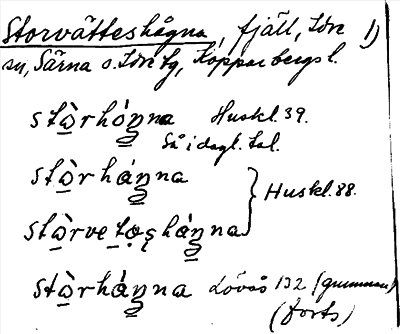 Storvätteshågna, fjäll, Idre 1)
sn, Särna o. Idre tg, Kopparbergs l.
stòrhóŋna Huskl. 39.
Så i dagl. tal.
stòrháŋna
Huskl. 88.
stòrvetǫsháŋna
stòrháŋna Lövås 132 (gumman)
(forts)